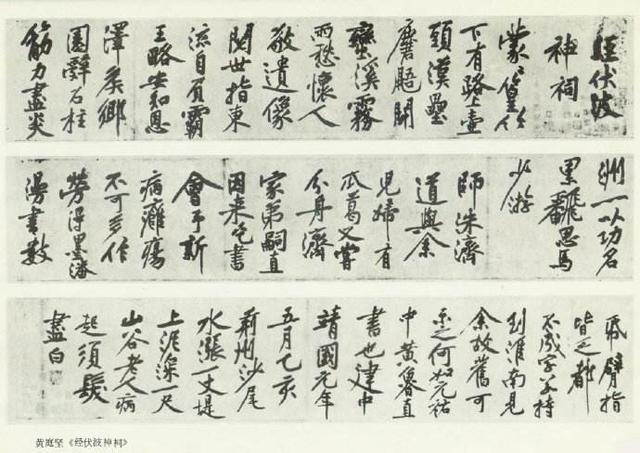 經伏波
神祠
蒙〻篁竹
下有路上壺
頭漢壘
麏鼯鬬
蠻溪霧
雨愁懷人
敬遺像
閱世指東
流自負霸
王略安知恩
澤侯鄉
園辭石柱
筋力盡炎
洲一以功名
累翻思馬
少游
師洙濟
道與余
兒婦有
瓜葛又嘗
分舟濟
家弟嗣直
因來乞書
會予新
病癰瘍
不可多作
勞得墨瀋
漫書數
紙臂指
皆乏都
不成字若持
到淮南見
余故舊可
示之何如元祐
中黃魯直
書也建中
靖國元年
五月乙亥
荊州沙尾
水漲一丈堤
上泥深一尺
山谷老人病
起須髮
盡白
黄庭坚《经伏波神祠》